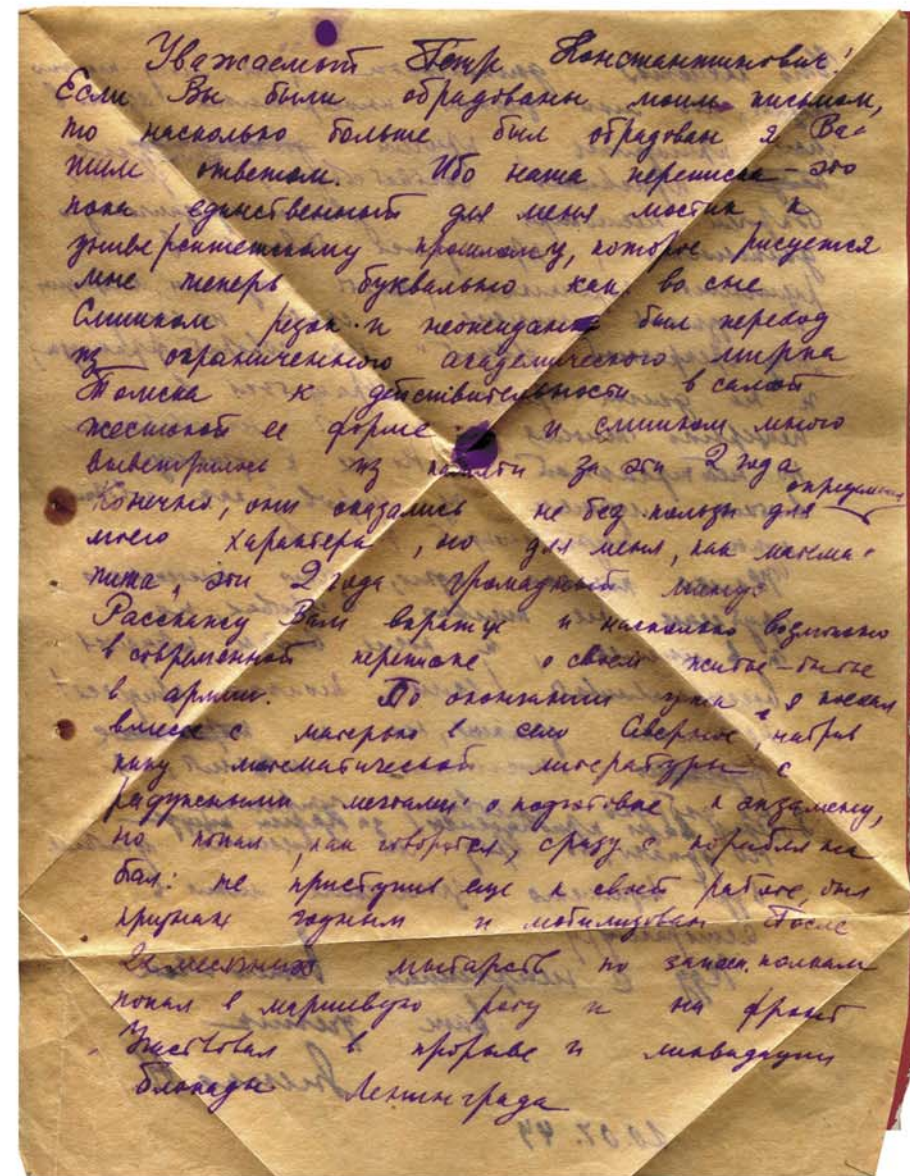 Уважаемый Петр Константинович!
Если Вы были обрадованы моим письмом,
то насколько больше был обрадован я Ва-
шим ответом. Ибо наша переписка - это
пока единственный для меня мостик к
университетскому прошлому, которое рисуется
мне теперь буквально как во сне
Слишком резок и неожидан был переход
из ограниченного академического мирка
Томска к действительности в самой
жестокой ее форме и слишком много
выветрилось из памяти за эти 2 года
Конечно, они оказались не без пользы для определения
моего характера, но для меня, как матема-
тика, эти 2 года громадный минус
Расскажу Вам вкратце и насколько возможно
в современной переписке о своем житье-бытье
в армии. По окончании я поехал
вместе с матерью в село Северное, набрав
кипу математической литературы с
радужными мечтами о подготовке к экзамену,
но попал, как говорится, сразу с корабля на
бал: не приступив еще к своей работе, был
признан годным и мобилизован После
2х месячных мытарств по запасн. полкам
попал в маршевую роту и на фронт
Участвовал в прорыве и ликвидации
блокады Ленинграда